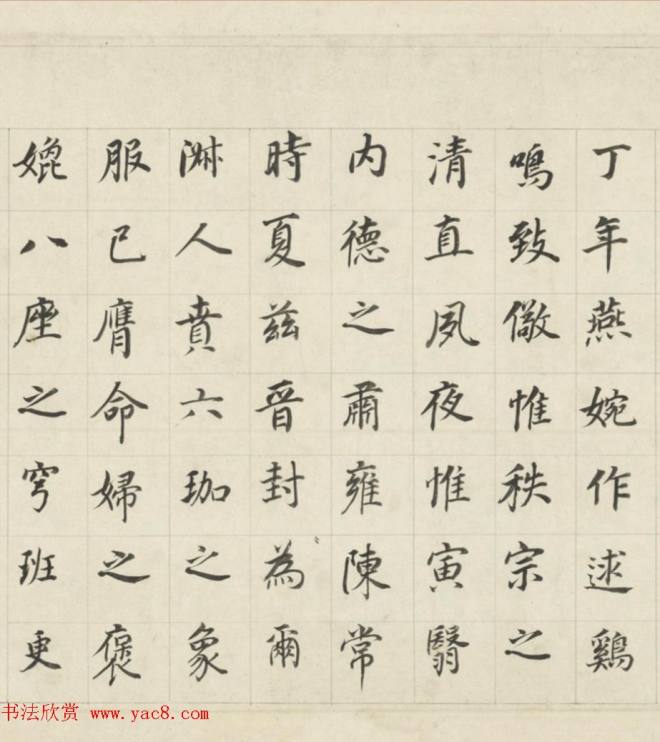 丁年燕婉作逑鷄
鳴致儆惟秩宗之
清直夙夜惟寅翳
内德之肅雍陳常
時夏兹晋封為爾
淋人賁六珈之象
服已膺命婦之褒
媲八座之穹班更
书法欣赏 www.yac8.com